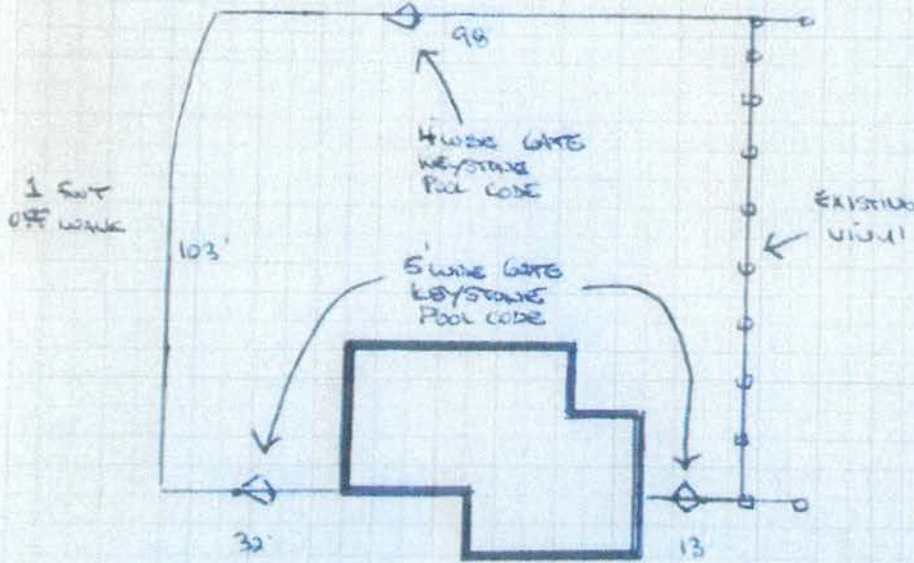 98
4' WIDE GATE
KEYSTONE
POOL CODE
1 FOOT
OFF WALK
103'
EXISTING
VINYL
5' WIDE GATE
KEYSTONE
POOL CODE
32'
13